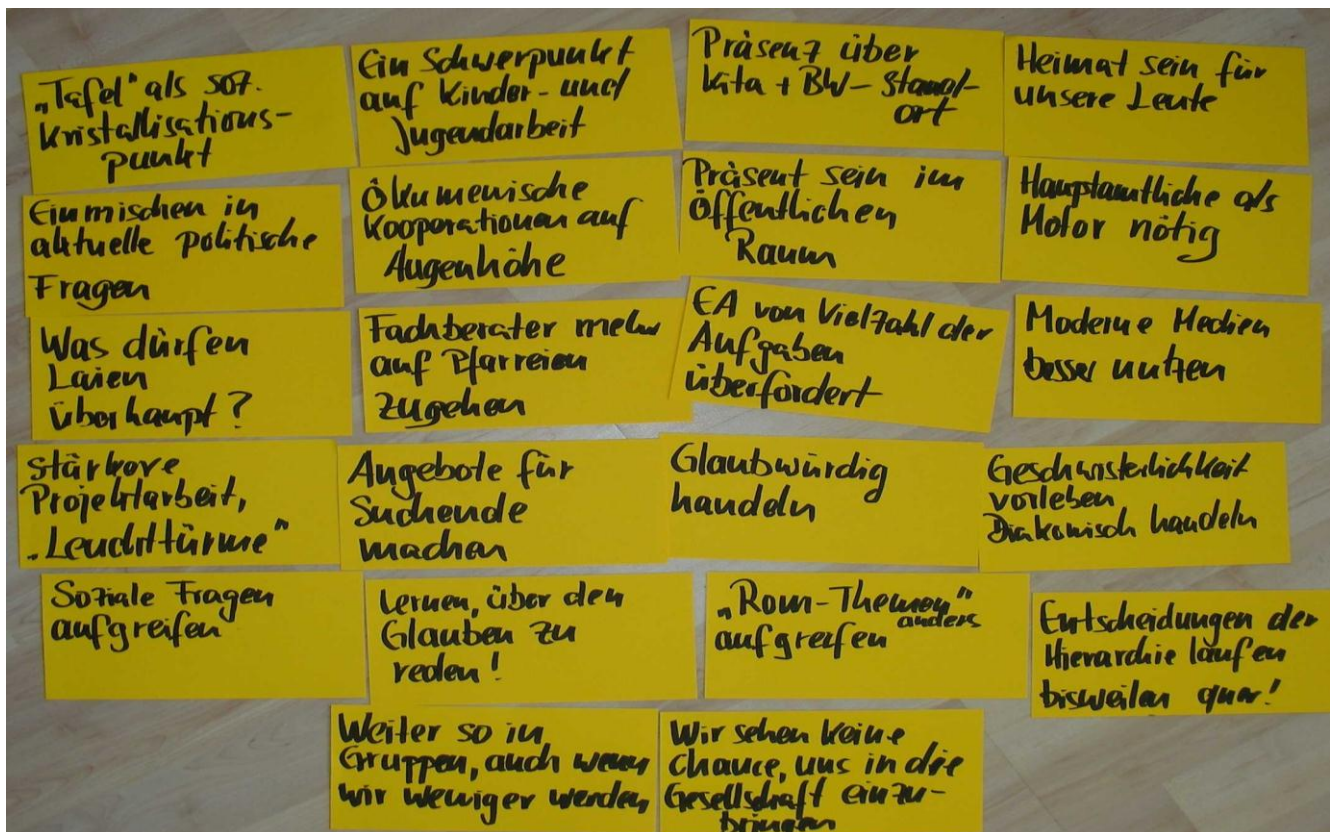 „Tafel“ als soz.
Kristallisations-
punkt
Ein Schwerpunkt
auf Kinder- und
Jugendarbeit
Präsenz über
Kita + BW-Stand-
ort
Heimat sein für
unsere Leute
Einmischen in
aktuelle politische
Fragen
Ökumenische
Kooperationen auf
Augenhöhe
Präsent sein im
öffentlichen
Raum
Hauptamtliche als
Motor nötig
Was dürfen
Laien
überhaupt?
Fachberater mehr
auf Pfarreien
zugehen
EA von Vielzahl der
Aufgaben
überfordert
Moderne Medien
besser nutzen
Stärkere
Projektarbeit,
„Leuchttürme“
Angebote für
Suchende
machen
Glaubwürdig
handeln
Geschwisterlichkeit
vorleben
Diakonisch handeln
Soziale Fragen
aufgreifen
Lernen, über den
Glauben zu
reden!
„Rom-Themen“
anders
aufgreifen
Entscheidungen der
Hierarchie laufen
bisweilen quer!
Weiter so in
Gruppen, auch wenn
wir weniger werden
Wir sehen keine
Chance, uns in die
Gesellschaft einzu-
bringen